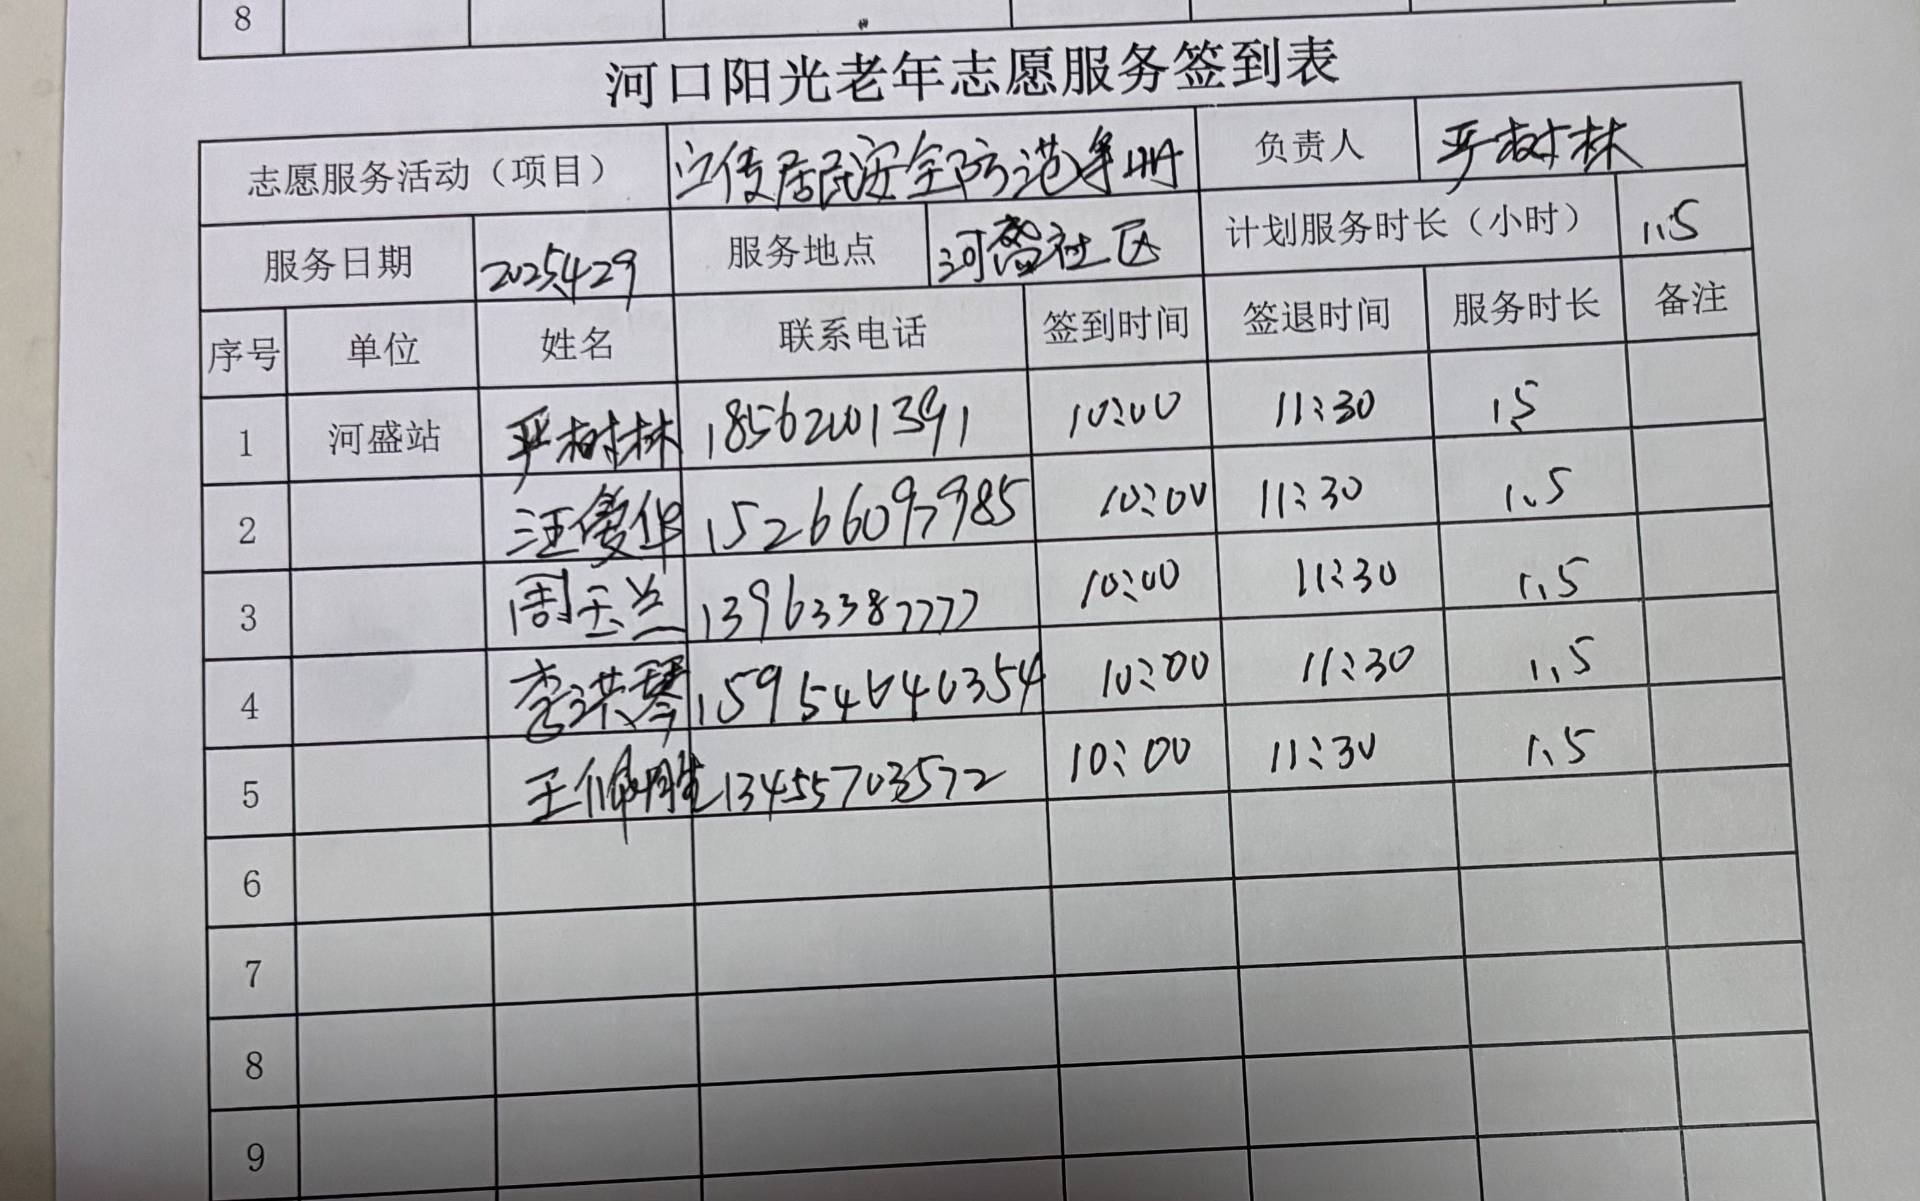 8
河口阳光老年志愿服务签到表
志愿服务活动（项目） 宣传居民安全防范手册 负责人 严树林
服务日期 2025.4.29 服务地点 河盛社区 计划服务时长（小时） 1.5
序号 单位 姓名 联系电话 签到时间 签退时间 服务时长 备注
1 河盛站 严树林 18562001391 10:00 11:30 1.5
2 汪爱华 15266097985 10:00 11:30 1.5
3 周玉兰 13963387777 10:00 11:30 1.5
4 李洪琴 15954640354 10:00 11:30 1.5
5 王 13455703572 10:00 11:30 1.5
6
7
8
9